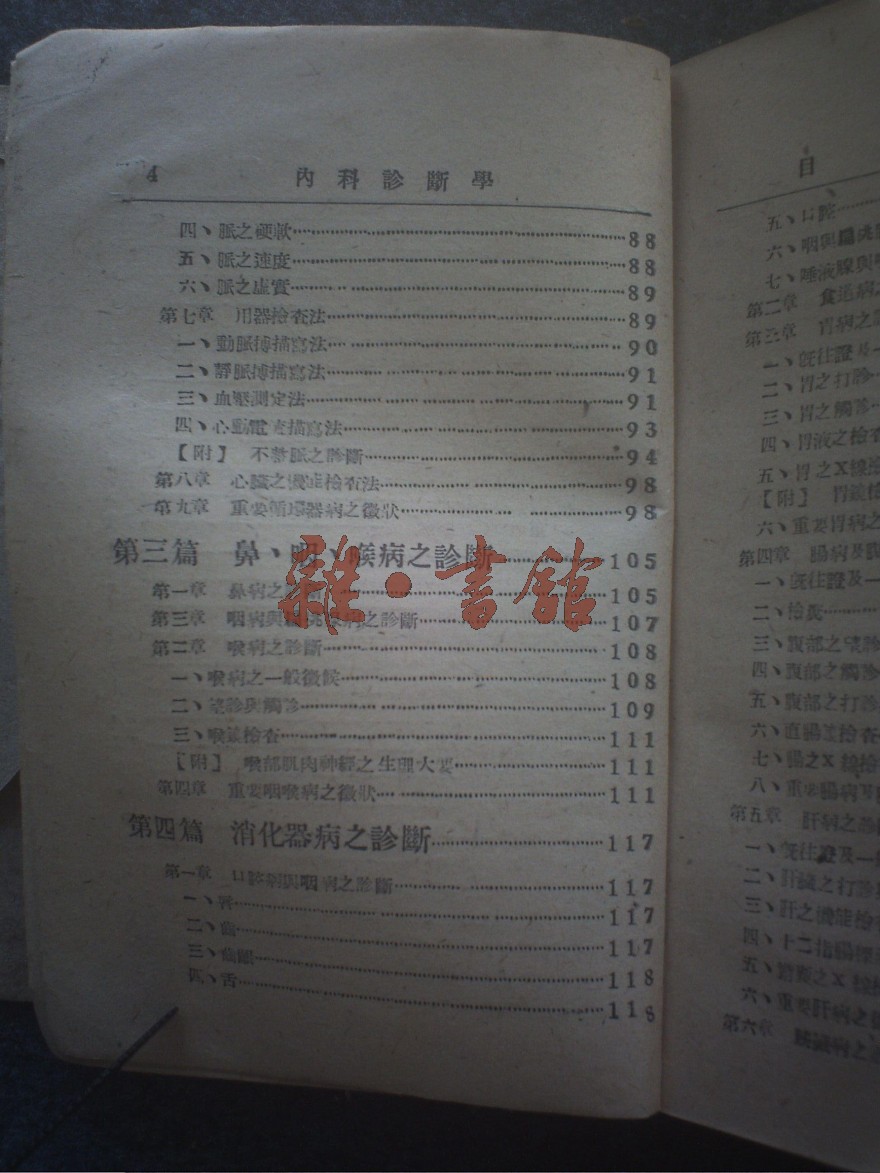 4 內科診斷學
四、脈之硬軟 88
五、脈之速度 88
六、脈之虛實 89
第七章 用器檢查法 89
一、動脈搏描寫法 90
二、靜脈搏描寫法 91
三、血壓測定法 91
四、心動電流描寫法 93
[附] 不整脈之診斷 94
第八章 心臟之機能檢查法 98
第九章 重要循環器病之徵狀 98
第三篇 鼻、咽、喉病之診斷 105
第一章 鼻病之診斷 105
第三章 咽病與扁桃腺病之診斷 107
第二章 喉病之診斷 108
一、喉病之一般徵候 108
二、望診與觸診 109
三、喉鏡檢查 111
[附] 喉部肌肉神經之生理大要 111
第四章 重要咽喉病之徵狀 111
第四篇 消化器病之診斷 117
第一章 口腔病與咽病之診斷 117
一、唇 117
二、齒 117
三、齒齦 118
四、舌 118
雜·書館
目
五、口腔
六、咽與扁桃
七、唾液腺與
第二章 食道病之
第三章 胃病之診
一、既往證及一
二、胃之打診
三、胃之觸診
四、胃液之檢查
五、胃之X線檢
[附] 胃鏡檢
六、重要胃病之
第四章 腸病及
一、既往證及一
二、檢糞
三、腹部之望診
四、腹部之觸診
五、腹部之打診
六、直腸並檢查
七、腸之X線檢
八、重要腸病
第五章 肝病之診
一、既往證及一
二、肝臟之打診
三、肝之機能檢查
四、十二指腸
五、膽囊之X線檢
六、重要肝病之
第六章 胰臟病之